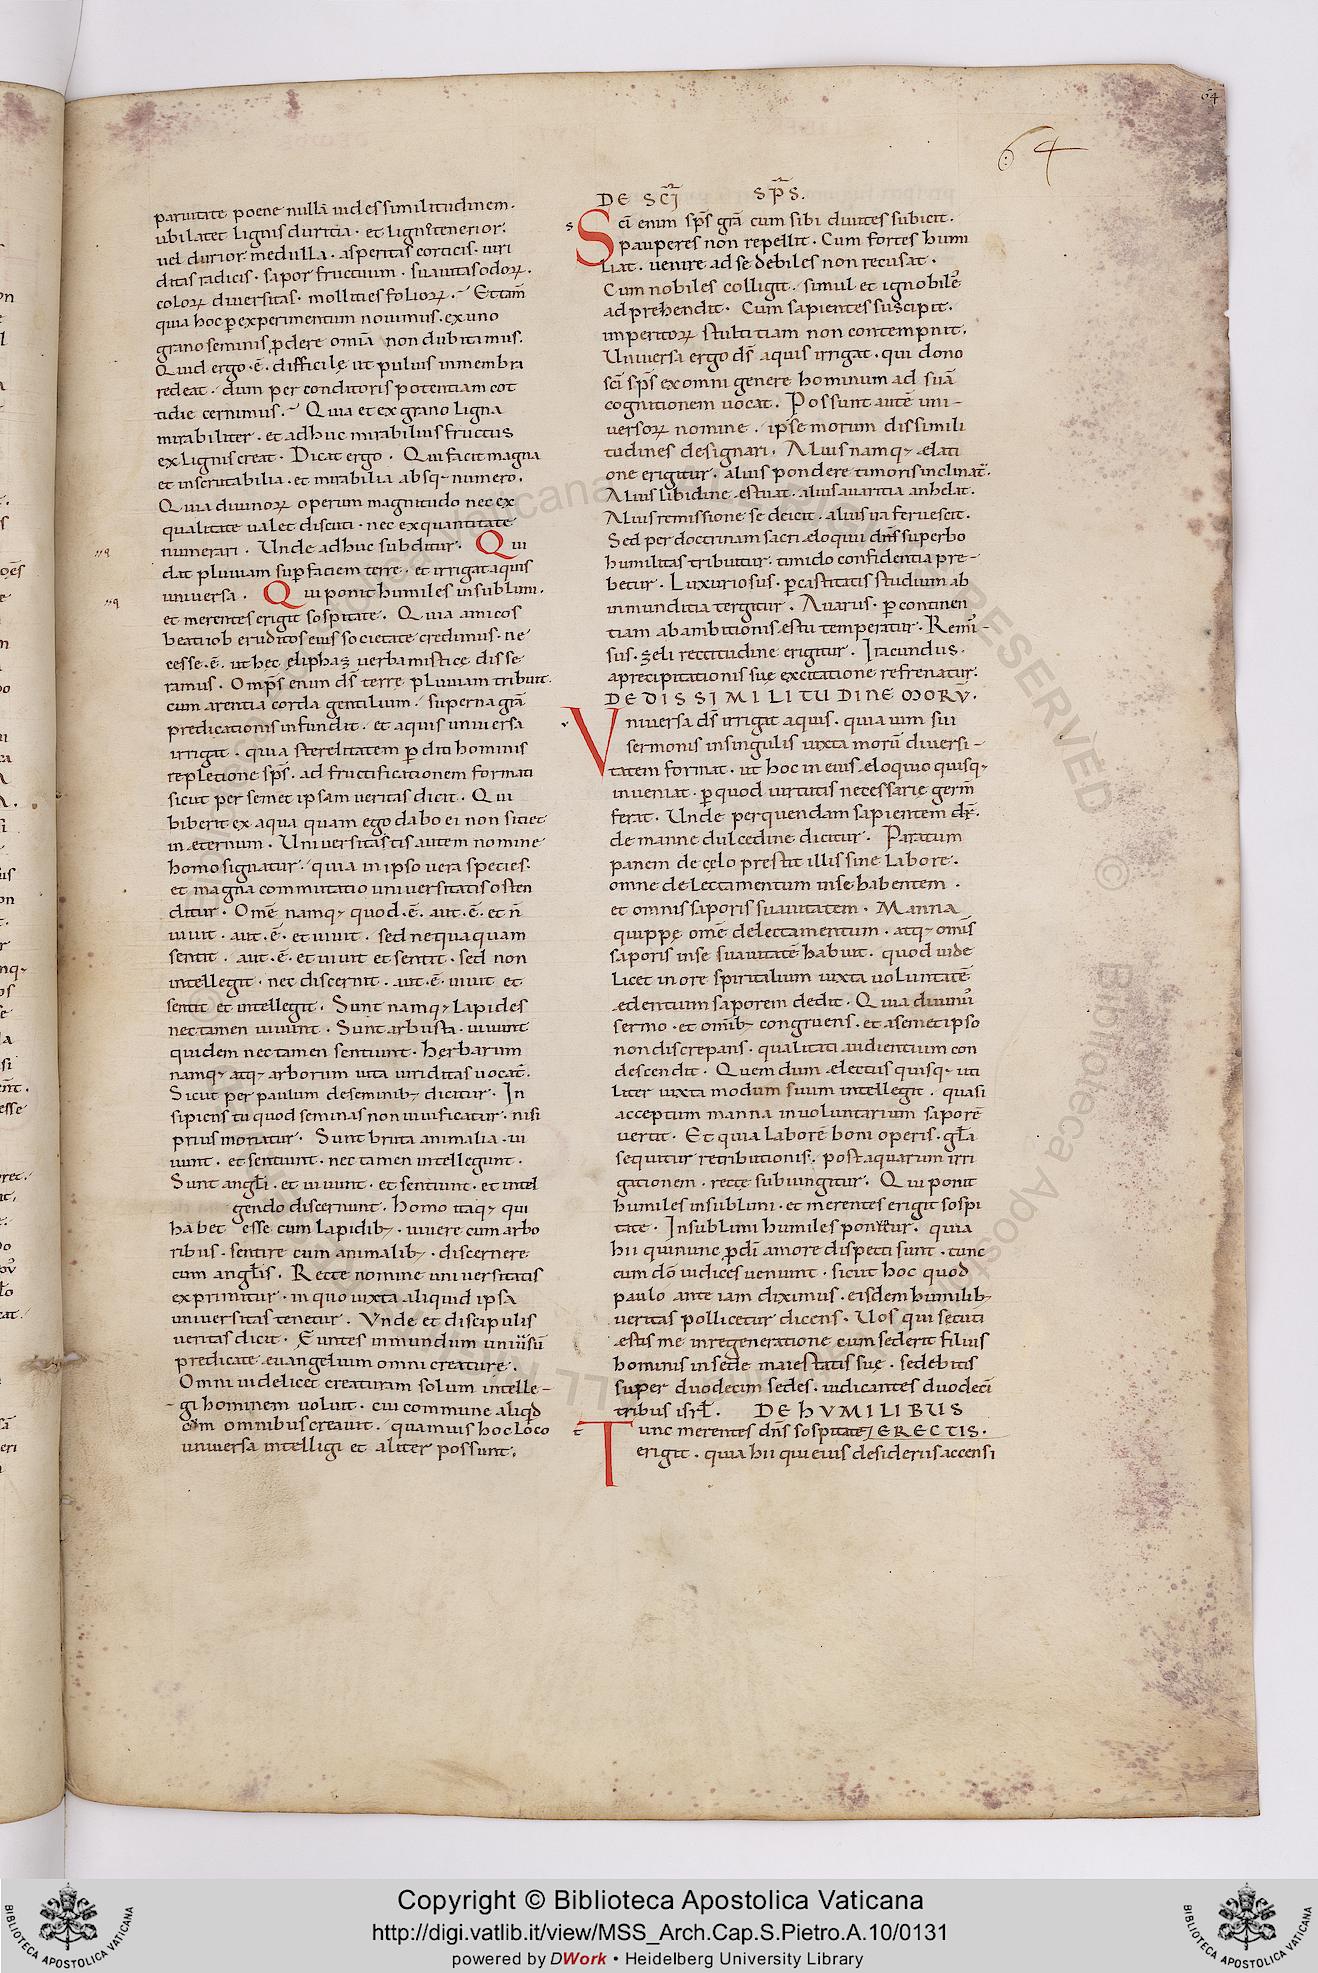 64
64
paruitate poene nullā uides similitudinem.
ubi latet lignis duritia · et ligni tenerior.
uel durior medulla · asperitas corticis · uiri
ditas radicis · sapor fructuum · suauitas odorꝝ.
colorꝝ diuersitas · mollities foliorꝝ. Et tam̄
quia hoc ꝑ experimentum nouimus · ex uno
grano seminis ꝓdere omīa non dubitamus.
Quid ergo · ē · difficilę ut puluis in membra
redeat · dum per conditoris potentiam cot
tidie cernimus. Quia et ex grano ligna
mirabiliter · et adhuc mirabilius fructus
ex lignis creat · Dicat ergo · Qui facit magna
et inscrutabilia · et mirabilia absq; numero.
Quia diuinorꝝ operum magnitudo nec ex
qualitate ualet discuti · nec ex quantitate
numerari · Unde adhuc subditur · Qui
dat pluuiam suꝑ faciem terre · et irrigat aquis
uniuersa · Qui ponit humiles in sublim.
et merentes erigit sospitate · Quia amicos
beati iob eruditos eius societate credimus · ne
eesse · ē · ut hec eliphaz uerba mistice disse
ramus · Omp̄s enim d̄s terrę pluuiam tribuit.
cum arentia corda gentilium · superna grā
predicationis infundit · et aquis uniuersa
irrigat · quia sterelitatem ꝑditi hominis
repletione sp̄s · ad fructificationem format
sicut per semet ipsam ueritas dicit · Qui
biberit ex aqua quam ego dabo ei non sitiet
in æternum · Uniuersitatis autem nomine
homo signatur · quia in ipso uera species.
et magna commutatio uniuersitatis osten
ditur · Omē namq; quod · ē · aut · ē · et n̄
uiuit · aut · ē · et uiuit · sed nequaquam
sentit · aut · ē · et uiuit et sentit · sed non
intellegit · nec discernit · aut · ē · uiuit et
sentit et intellegit · Sunt namq; lapides
nec tamen uiuunt · Sunt arbusta · uiuunt
quidem nec tamen sentiunt · herbarum
namq; atq; arborum uita uiriditas uocat̄.
Sicut per paulum de seminib; dicitur · In
sipiens tu quod seminas non uiuificatur · nisi
prius moriatur · Sunt bruta animalia · ui
uunt · et sentiunt · nec tamen intellegunt.
Sunt angłi · et uiuunt · et sentiunt · et intel
gendo discernunt · homo itaq; qui
habet esse cum lapidib; · uiuere cum arbo
ribus · sentire cum animalib; · discernere
cum angłis. Recte nomine uniuersitatis
exprimitur · in quo iuxta aliquid ipsa
uniuersitas tenetur. Vnde et discipulis
ueritas dicit · Euntes in mundum uniūsū
predicate euangelium omni creature.
Omni uidelicet creaturam solum intelle-
gi hominem uoluit · cui commune aliqd
cum omnibus creauit · quamuis hoc loco
uniuersa intelligi et aliter possunt.
DE SC̄I SP̄S.
s Sc̄i enim sp̄s grā cum sibi diuites subicit.
pauperes non repellit · Cum fortes humi
liat · uenire ad se debiles non recusat.
Cum nobiles colligit · simul et ignobiles
adprehendit · Cum sapientes suscipit.
imperitorꝝ stultitiam non contempnit.
Uniuersa ergo d̄s aquis irrigat · qui dono
sc̄i sp̄s ex omni genere hominum ad suā
cognitionem uocat · Possunt autē uni-
uersorꝝ nomine · ipse morum dissimili
tudines designari · Alius namq; elati
one erigitur · alius pondere timoris inclinat̄.
Alius libidine estuat · alius auaritia anhelat.
Alius remissione se deicit · alius ira feruescit.
Sed per doctrinam sacri eloquii dn̄s superbo
humilitas tribuitur · timido confidentia pre-
betur · Luxuriosus · ꝑ castitatis studium ab
inmunditia tergitur · Auarus · ꝑ continen
tiam ab ambitionis estu temperatur · Remi-
sus · zeli rectitudine erigitur · Iracundus.
a precipitationis suę excitatione refrenatur.
DE DISSIMILITUDINE MORV̄.
v Vniuersa d̄s irrigat aquis · quia uim sui
sermonis in singulis iuxta morū diuersi-
tatem format · ut hoc in eius eloquio quisq;
inueniat · ꝑ quod uirtutis necessarię germ̄
ferat · Unde per quendam sapientem dr̄.
de manne dulcedine dicitur · Paratum
panem de cęlo prestit illis sine labore.
omne delectamentum in se habentem.
et omnis saporis suauitatem · Manna
quippę omē delectamentum · atq; omīs
saporis in se suauitatē habuit · quod uide
licet in ore spiritalium iuxta uoluntatē
edentium saporem dedit · Quia diuinus
sermo · et omīb; congruens · et a semet ipso
non discrepans · qualitati audientium con
descendit · Quem dum electus quisq; uti
liter iuxta modum suum intellegit · quasi
acceptum manna in uoluntarium saporē
uertit · Et quia laborē boni operis · głā
sequitur retributionis · post aquarum irri
gationem · recte subiungitur · Qui ponit
humiles in sublimi · et merentes erigit sospi
tate · In sublimi humiles ponetur · quia
hii qui nunc ꝑ dī amore dispecti sunt · tunc
cum dō iudices ueniunt · sicut hoc quod
paulo ante iam diximus · eisdem humilib;
ueritas pollicetur dicens · Uos qui secuti
estis me in regeneratione cum sederit filius
hominis in sede maiestatis suę · sedebitis
super duodecim sedes · iudicantes duodecī
tribus isrł. DE hVMILIBUS
t Tunc merentes dn̄s sospitate ERECTIS.
erigit · quia hii qui eius desideriis accensi
Copyright © Biblioteca Apostolica Vaticana
http://digi.vatlib.it/view/MSS_Arch.Cap.S.Pietro.A.10/0131
powered by DWork • Heidelberg University Library
BIBLIOTECA APOSTOLICA VATICANA
BIBLIOTECA APOSTOLICA VATICANA